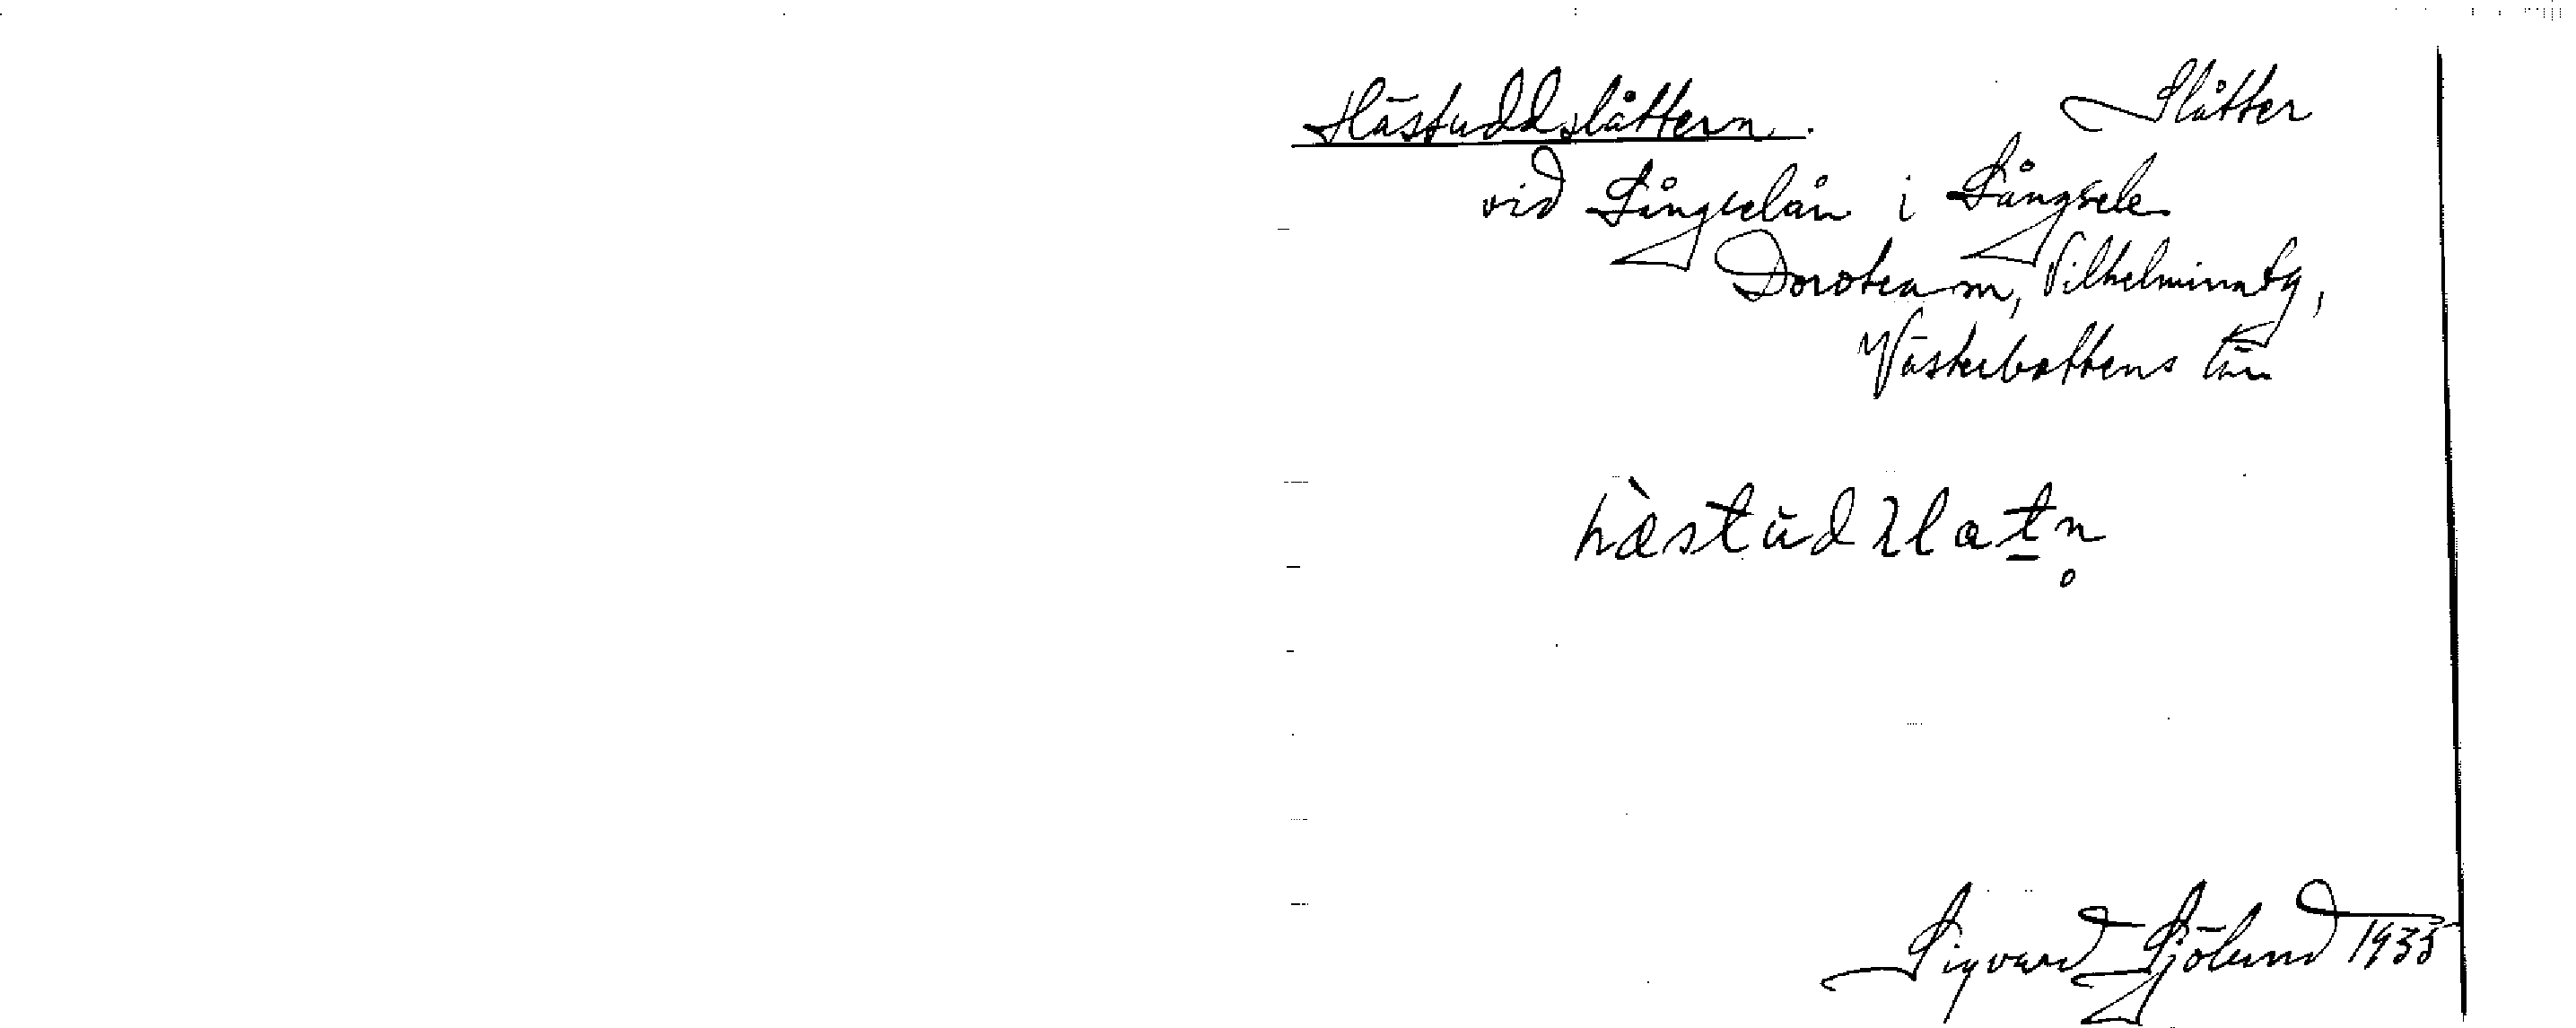 Hästuddslåttern. Slåtter
vid Långselån i Långsele
Dorotea sn, Vilhelmina tg,
Västerbottens län
hæ̀stùdʃlatn̥
Sigvard Sjölund 1935